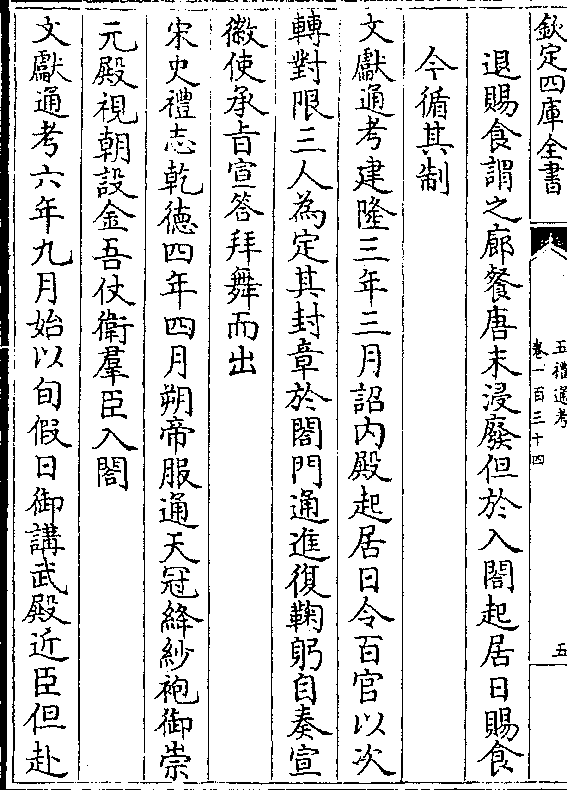 欽定四庫全書
五禮通考
卷一百三十四
五
退賜食謂之廊餐唐末浸廢但於入閤起居日賜食
今循其制
文獻通考建隆三年三月詔内殿起居日令百官以次
轉對限三人為定其封章於閤門通進復鞠躬自奏宣
徽使承旨宣答拜舞而出
宋史禮志乾德四年四月朔帝服通天冠絳紗袍御崇
元殿視朝設金吾仗衛羣臣入閤
文獻通考六年九月始以旬假日御講武殿近臣但赴